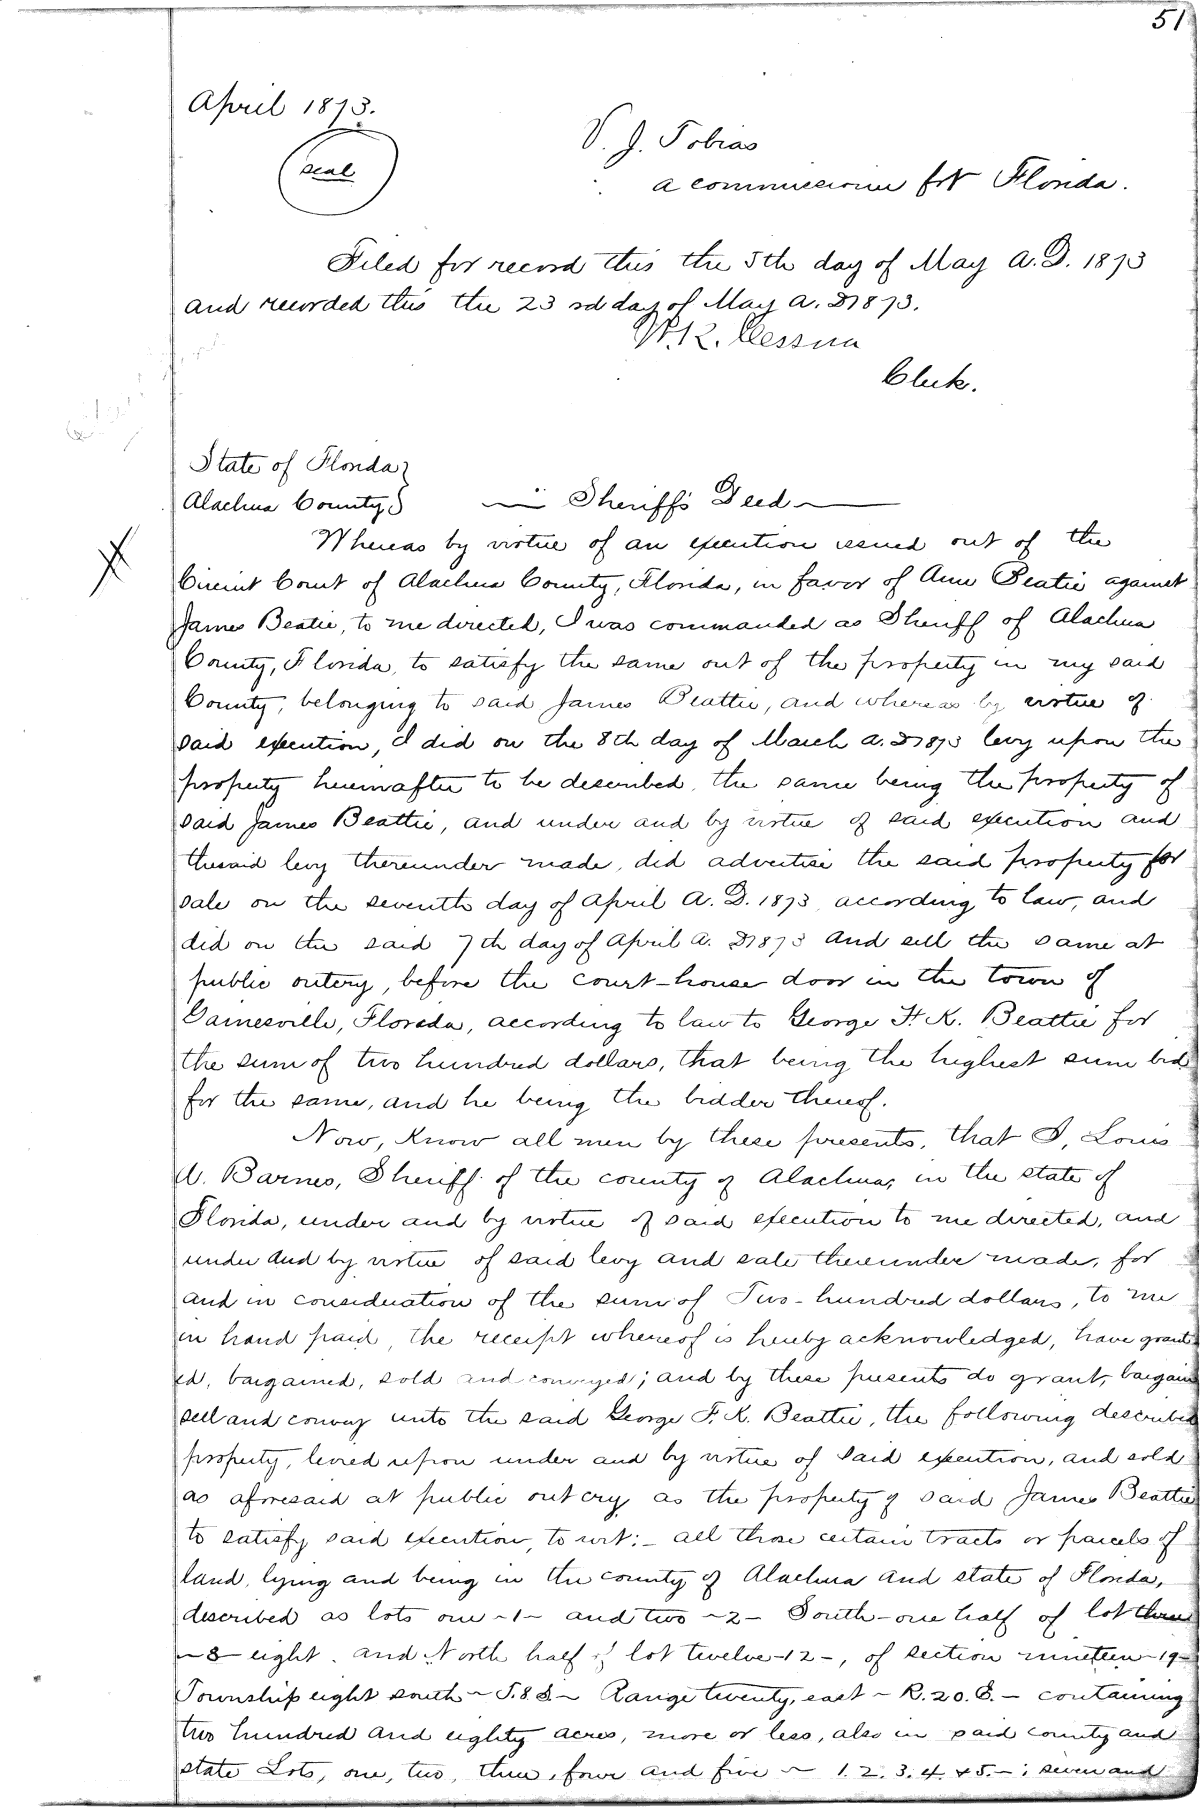 51
April 1873.
V. J. Tobias
seal
a commissioner for Florida.
Filed for record this the 5th day of May A.D. 1873
and recorded this the 23rd day of May A.D 1873.
W.K. Cessna
Clerk.
State of Florida }
Alachua County }
Sheriff's Deed
Whereas by virtue of an execution issued out of the
Circuit Court of Alachua County, Florida, in favor of Ann Beatie against
James Beatie, to me directed, I was commanded as Sheriff of Alachua
County, Florida, to satisfy the same out of the property in my said
County, belonging to said James Beattie, and whereas by virtue of
said execution, I did on the 8th day of March A.D 1873 levy upon the
property hereinafter to be described, the same being the property of
said James Beattie, and under and by virtue of said execution and
the said levy thereunder made, did advertise the said property for
sale on the seventh day of April A.D. 1873, according to law, and
did on the said 7th day of April A.D 1873 and sell the same at
public outcry, before the court-house door in the town of
Gainesville, Florida, according to law to George F. K. Beattie for
the sum of two hundred dollars, that being the highest sum bid
for the same, and he being the bidder thereof.
Now, Know all men by these presents, that I, Louis
A. Barnes, Sheriff of the county of Alachua, in the state of
Florida, under and by virtue of said execution to me directed, and
under and by virtue of said levy and sale thereunder made, for
and in consideration of the sum of Two-hundred dollars, to me
in hand paid, the receipt whereof is hereby acknowledged, have grant
ed, bargained, sold and conveyed; and by these presents do grant, bargain
sell and convey unto the said George F. K. Beattie, the following described
property, levied upon under and by virtue of said execution, and sold
as aforesaid at public outcry as the property of said James Beattie
to satisfy said execution, to wit:- all those certain tracts or parcels of
land, lying and being in the county of Alachua and state of Florida,
described as lots one -1- and two -2- South-one half of lot three
-8- eight. and North half of lot twelve -12-, of section nineteen -19-
Township eight south - T.8.S.- Range twenty, east - R.20.E.- containing
two hundred and eighty acres, more or less, also in said county and
state Lots, one, two, three, four and five - 1.2.3.4.&5.-; seven and